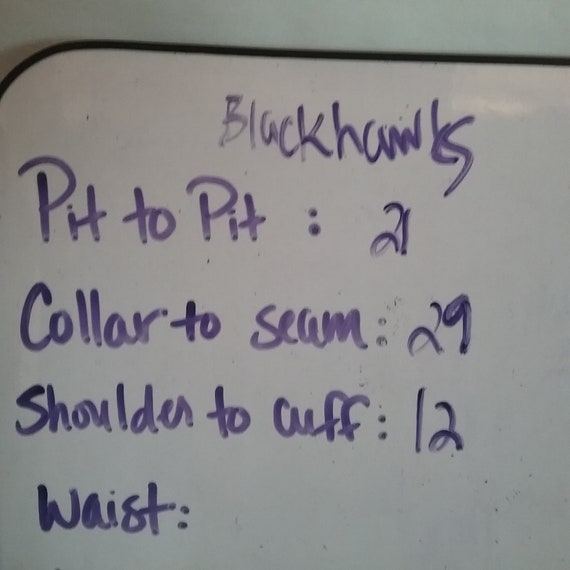 Blackhawks
Pit to Pit : 21
Collar to seam: 29
Shoulder to cuff: 12
Waist: